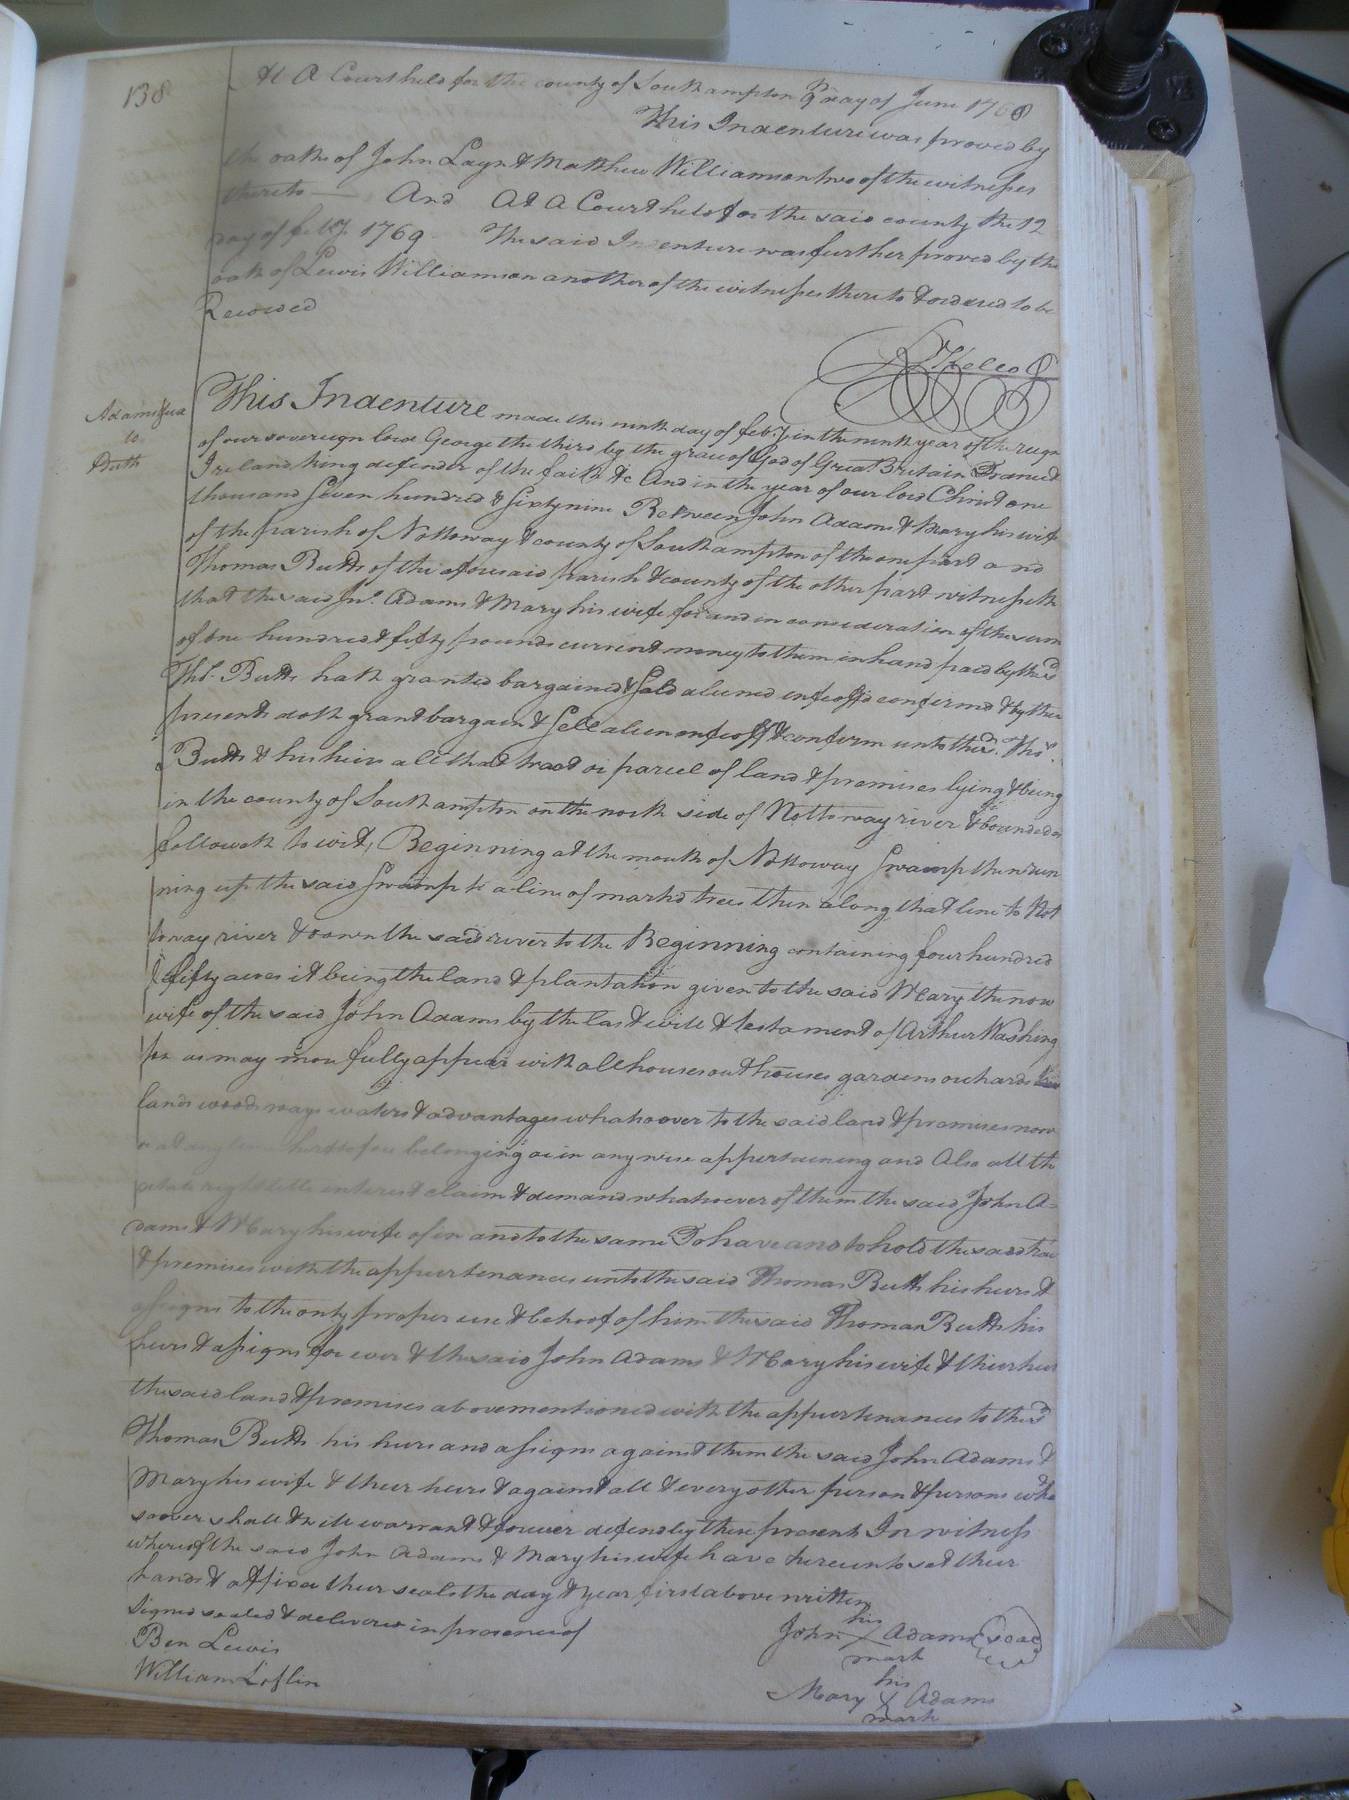 138
At A Court held for the county of Southampton 9 day of June 1768
This Indenture was proved by
the oaths of John Layn & Matthew Williamson two of the witnesses
thereto — And At A Court held for the said county the 12
day of feb.y 1769 The said Indenture was further proved by the
oath of Lewis Williamson another of the witnesses thereto & ordered to be
Recorded
R Kello
Adams &ux
to
Butts
This Indenture made this ninth day of feb.y in the ninth year of the reign
of our sovereign lord George the third by the grace of God of Great Britain France &
Ireland king defender of the faith &c And in the year of our lord Christ one
thousand seven hundred & sixty nine Between John Adams & Mary his wife
of the parish of Nottoway & county of Southampton of the one part and
Thomas Butts of the aforesaid parish & county of the other part witnesseth
that the said Jn.o Adams & Mary his wife for and in consideration of the sum
of one hundred & fifty pounds current money to them in hand paid by the sd
Tho.s Butts hath granted bargained & sold aliened infeoff'd confirmed & by these
presents doth grant bargain & sell alien enfeoff & confirm unto the sd. Tho.s
Butts & his heirs all that tract or parcel of land & premises lying & being
in the county of Southampton on the north side of Nottoway river & bounded as
followeth to wit, Beginning at the mouth of Nottoway swamp then run
ning up the said swamp to a line of markd trees then along that line to Not
toway river & down the said river to the Beginning containing four hundred
& fifty acres it being the land & plantation given to the said Mary the now
wife of the said John Adams by the last will & testament of Arthur Washing
ton as may more fully appear with all houses outhouses gardens orchards
lands woods ways waters & advantages whatsoever to the said land & premises now
or at any time heretofore belonging or in any wise appertaining and Also all the
estate right title interest claim & demand whatsoever of them the said John A=
dams & Mary his wife of in and to the same To have and to hold the said trac
& premises with the appurtenances unto the said Thomas Butts his heirs &
assigns to the only proper use & behoof of him the said Thomas Butts his
heirs & assigns for ever & the said John Adams & Mary his wife & their heir
the said land & premises abovementioned with the appurtenances to the sd
Thomas Butts his heirs and assigns against them the said John Adams &
Mary his wife & their heirs & against all & every other person & persons what
soever shall & will warrant & forever defend by these presents In witness
whereof the said John Adams & Mary his wife have hereunto set their
hands & affixed their seals the day & year first above written
signed sealed & delivered in presence of
Ben Lewis
William Loflin
his
John X Adams (seal)
mark
his
Mary X Adams
mark